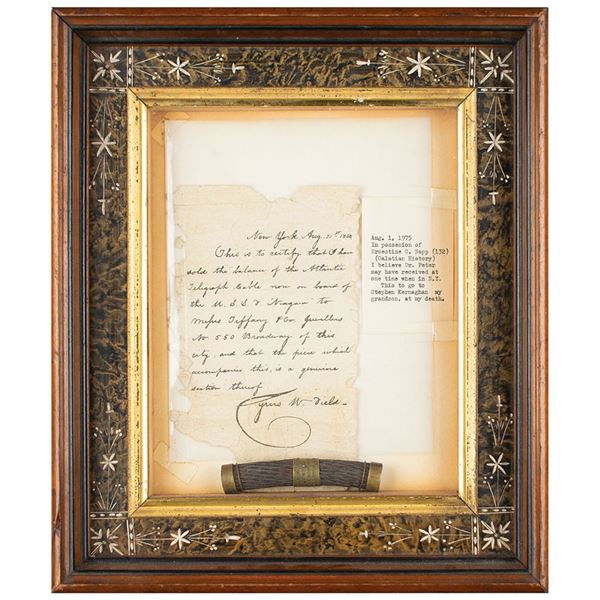 New York Aug. 21st 1858
This is to certify that I have
sold the balance of the Atlantic
Telegraph Cable now on board of
the U.S.S.F. Niagara to
Messrs Tiffany & Co. Jewellers
No 550 Broadway of this
city, and that the piece which
accompanies this, is a genuine
section thereof
Cyrus W. Field
Aug. 1, 1975
In possesion of
Ernestine C. Sapp (132)
(Galatian History)
I believe Dr. Peter
may have received at
one time when in N.Y.
This to go to
Stephen Kernaghan my
grandson, at my death.